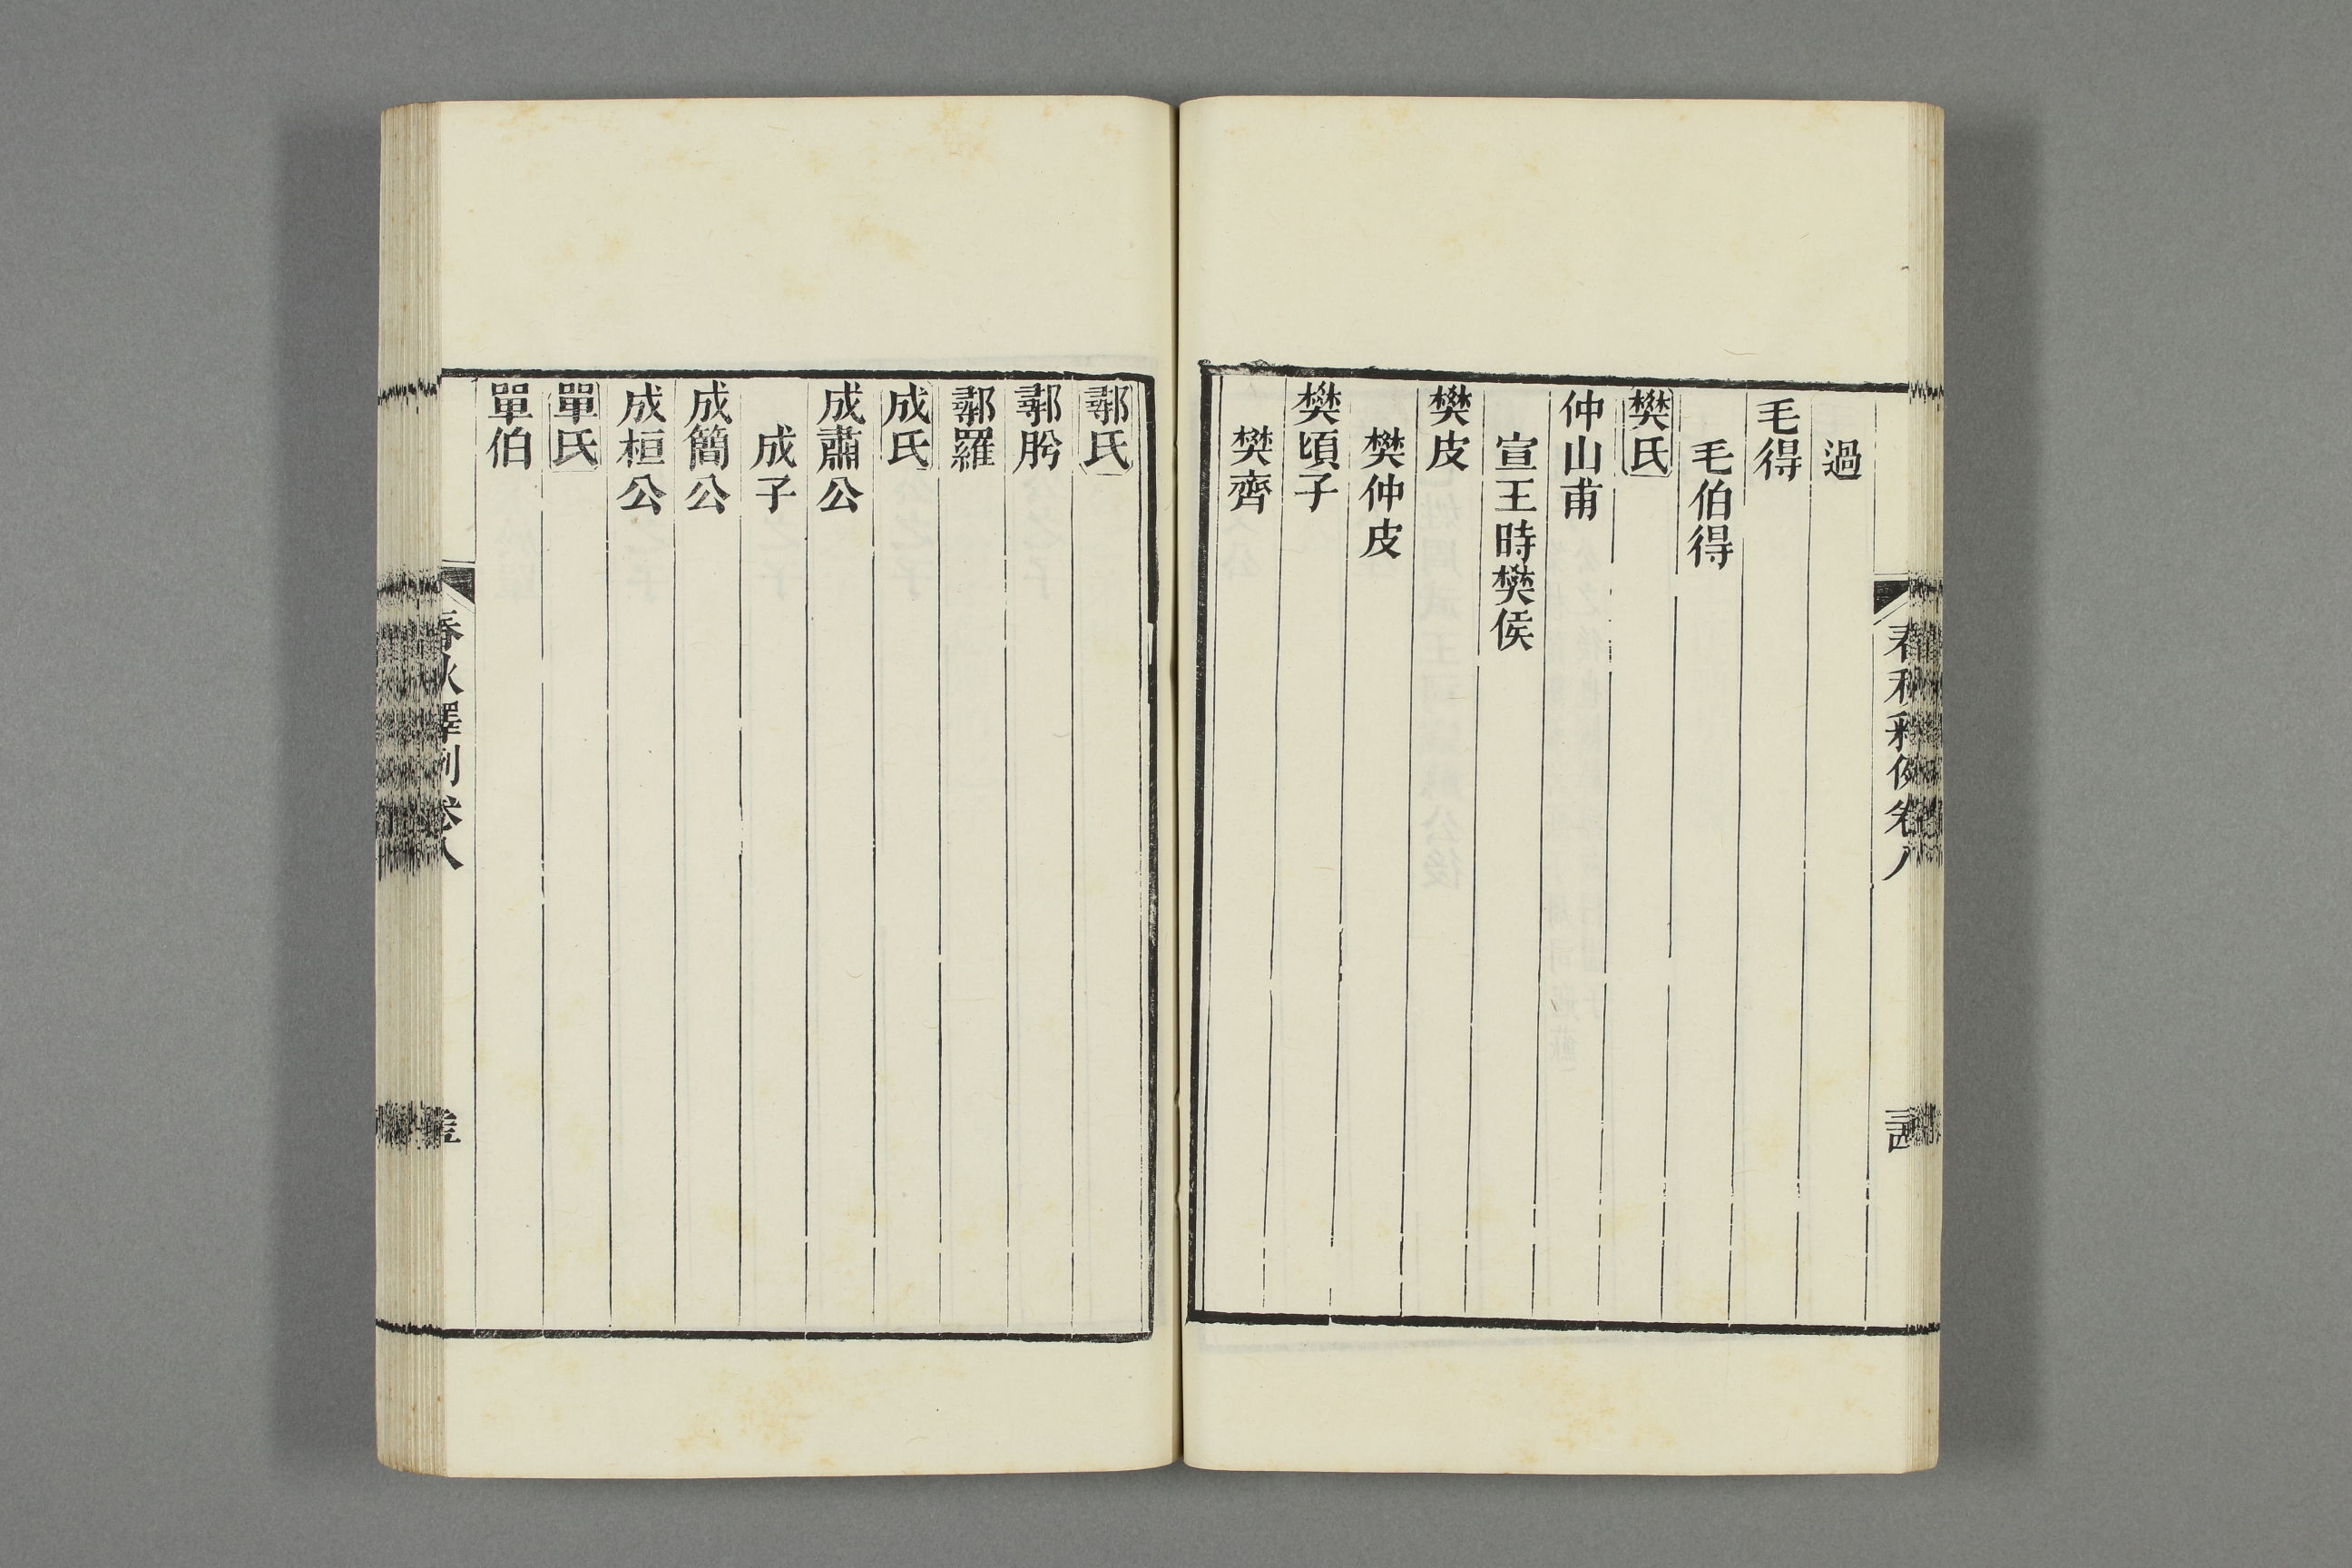 春秋釋例卷八
過
毛得
毛伯得
樊氏
仲山甫
宣王時樊侯
樊皮
樊仲皮
樊頃子
樊齊
鄩氏
鄩肹
鄩羅
成氏
成肅公
成子
成簡公
成桓公
單氏
單伯
春秋釋例卷八